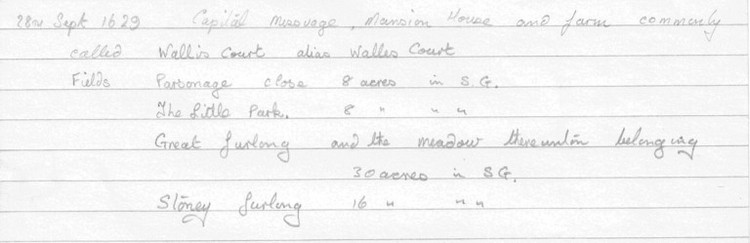 28th Sept 1629 Capital Messuage, Mansion House and farm commonly
called Wallis Court alias Walles Court
Fields Parsonage close 8 acres in S.G.
The Little Park. 8 " " "
Great Furlong and the meadow thereunto belonging
30 acres in S.G.
Stoney Furlong 16 " " "